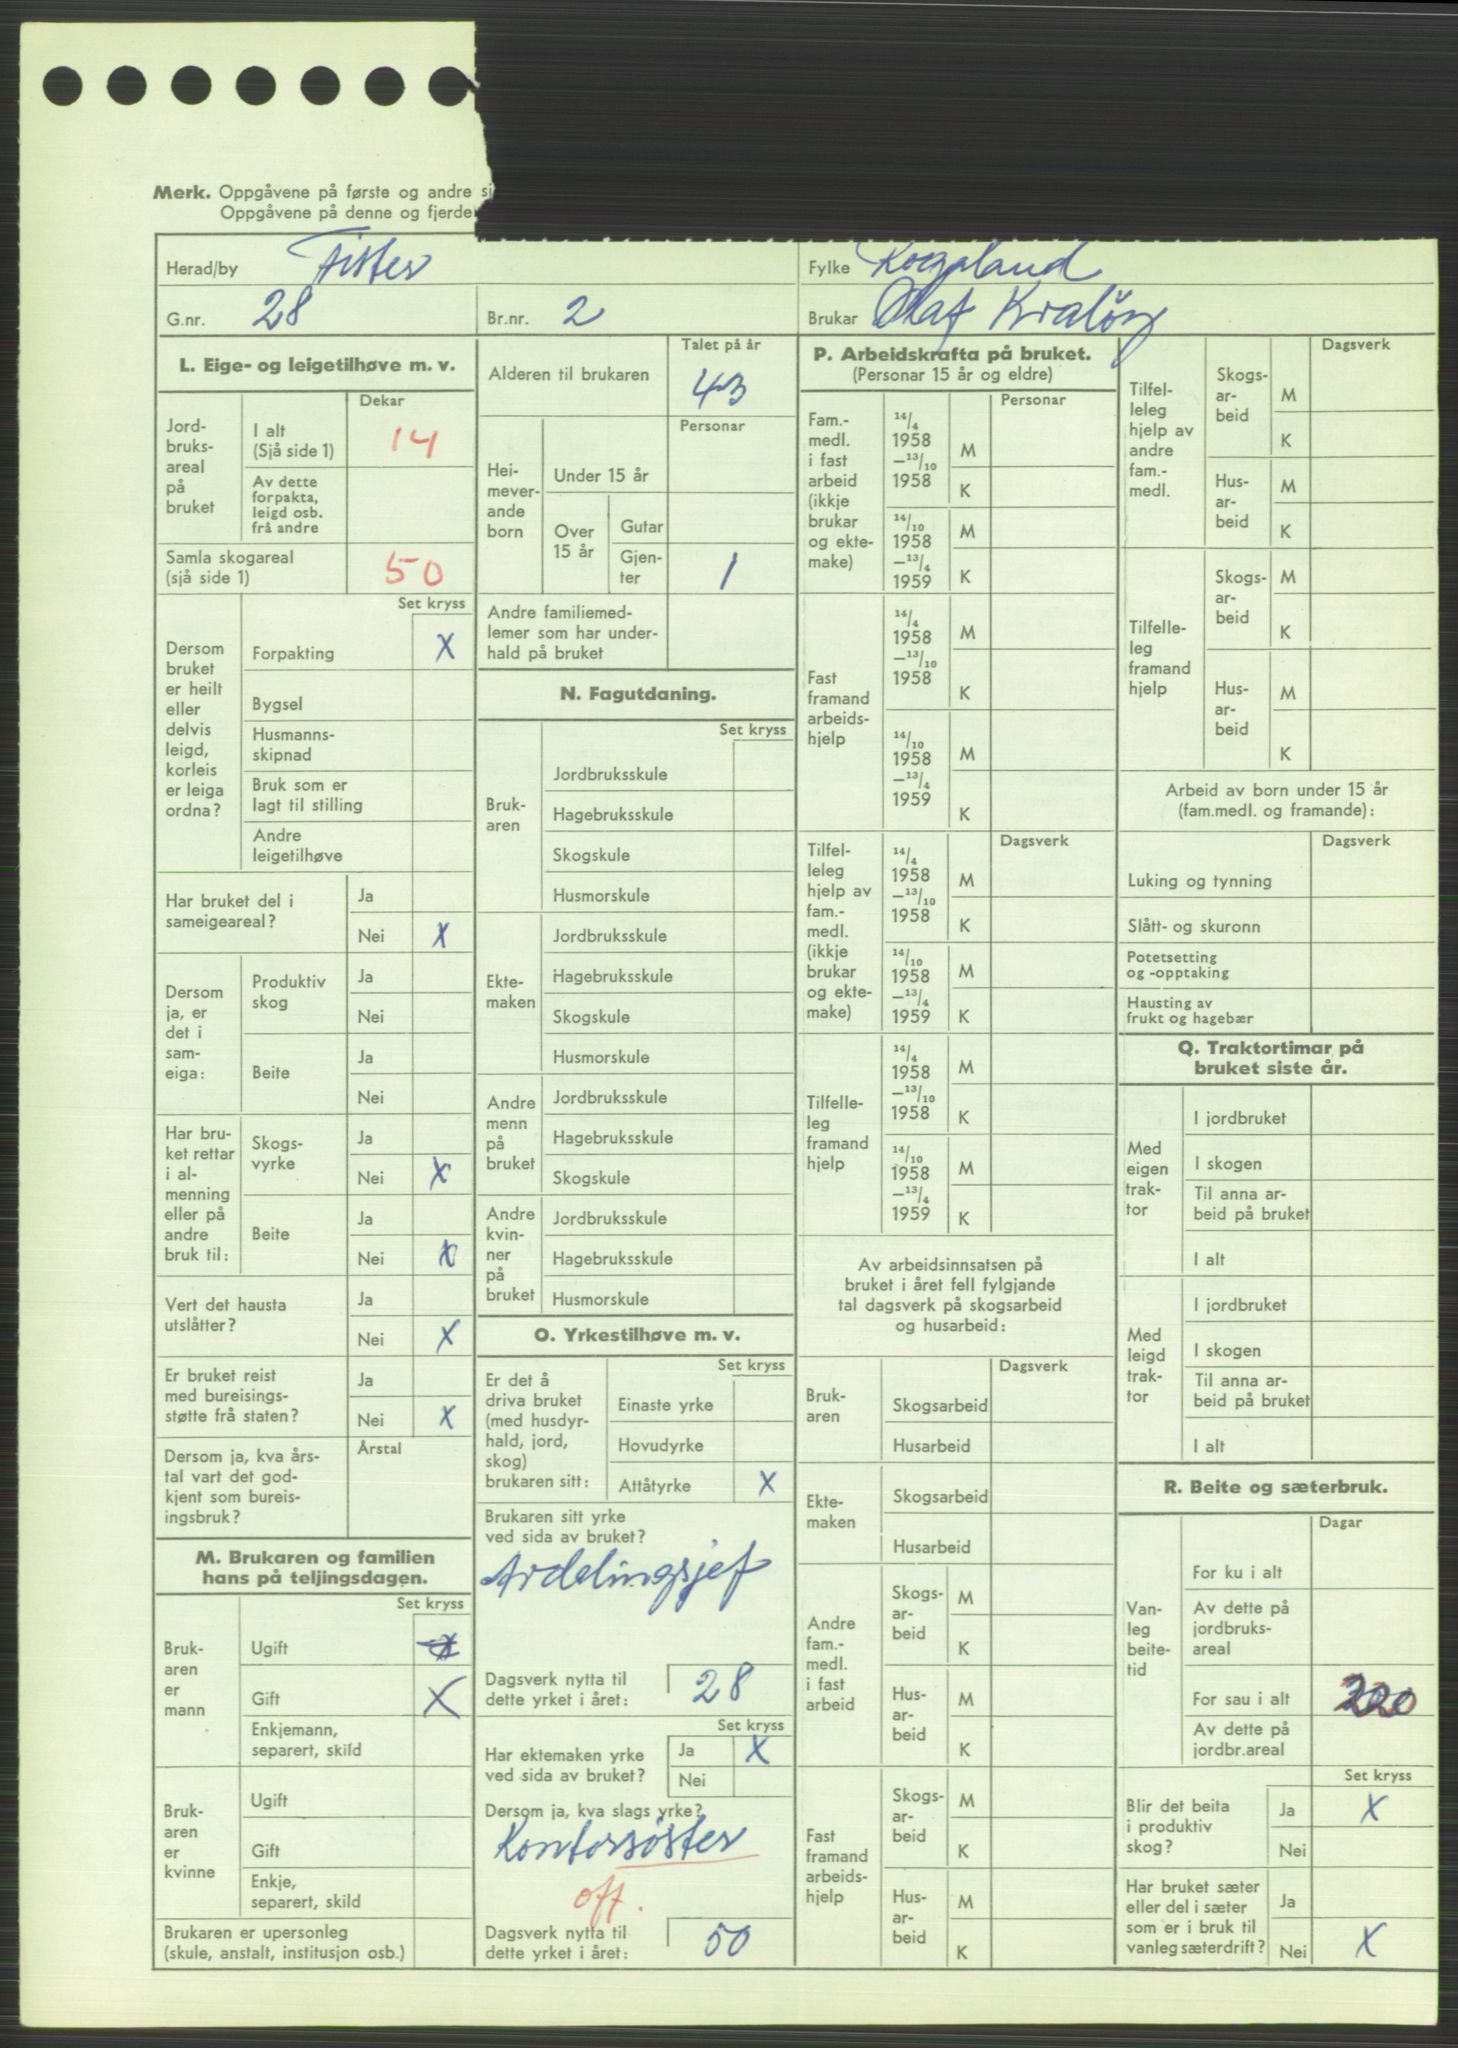 Merk. Oppgåvene på første og andre si
Oppgåvene på denne og fjerde
Herad/by Fister
Fylke Rogaland
G.nr. 28
Br.nr. 2
Brukar Olaf
L. Eige- og leigetilhøve m. v.
Dekar
Jord-
bruks-
areal
på
bruket
I alt
(Sjå side 1)
14
Av dette
forpakta,
leigd osb.
frå andre
Samla skogareal
(sjå side 1)
50
Set kryss
Dersom
bruket
er heilt
eller
delvis
leigd,
korleis
er leiga
ordna?
Forpakting X
Bygsel
Husmanns-
skipnad
Bruk som er
lagt til stilling
Andre
leigetilhøve
Har bruket del i
sameigeareal?
Ja
Nei X
Dersom
ja, er
det i
sam-
eiga:
Produktiv
skog
Ja
Nei
Beite
Ja
Nei
Har bru-
ket rettar
i al-
menning
eller på
andre
bruk til:
Skogs-
vyrke
Ja
Nei X
Beite
Ja
Nei X
Vert det hausta
utslåtter?
Ja
Nei X
Er bruket reist
med bureisings-
støtte frå staten?
Ja
Nei X
Dersom ja, kva års-
tal vart det god-
kjent som bureis-
ingsbruk?
Årstal
M. Brukaren og familien
hans på teljingsdagen.
Set kryss
Bruk-
aren
er
mann
Ugift X
Gift X
Enkjemann,
separert, skild
Bruk-
aren
er
kvinne
Ugift
Gift
Enkje,
separert, skild
Brukaren er upersonleg
(skule, anstalt, institusjon osb.)
Talet på år
Alderen til brukaren 43
Personar
Hei-
mever-
ande
born
Under 15 år
Over
15 år
Gutar
Gjen-
ter
1
Andre familiemed-
lemer som har under-
hald på bruket
N. Fagutdaning.
Set kryss
Bruk-
aren
Jordbruksskule
Hagebruksskule
Skogskule
Husmorskule
Ekte-
maken
Jordbruksskule
Hagebruksskule
Skogskule
Husmorskule
Andre
menn
på
bruket
Jordbruksskule
Hagebruksskule
Skogskule
Andre
kvin-
ner
på
bruket
Jordbruksskule
Hagebruksskule
Husmorskule
O. Yrkestilhøve m. v.
Set kryss
Er det å
driva bruket
(med husdyr-
hald, jord,
skog)
brukaren sitt:
Einaste yrke
Hovudyrke
Attåtyrke X
Brukaren sitt yrke
ved sida av bruket?
Avdelingsjef
Dagsverk nytta til
dette yrket i året:
28
Set kryss
Har ektemaken yrke
ved sida av bruket?
Ja X
Nei
Dersom ja, kva slags yrke?
Kontorsøster
off.
Dagsverk nytta til
dette yrket i året:
50
P. Arbeidskrafta på bruket.
(Personar 15 år og eldre)
Personar
Fam.-
medl.
i fast
arbeid
(ikkje
brukar
og ekte-
make)
14/4
1958
–13/10
1958
M
K
14/10
1958
–13/4
1959
M
K
Fast
framand
arbeids-
hjelp
14/4
1958
–13/10
1958
M
K
14/10
1958
–13/4
1959
M
K
Dagsverk
Tilfel-
leleg
hjelp av
fam.-
medl.
(ikkje
brukar
og ekte-
make)
14/4
1958
–13/10
1958
M
K
14/10
1958
–13/4
1959
M
K
Tilfelle-
leg
framand
hjelp
14/4
1958
–13/10
1958
M
K
14/10
1958
–13/4
1959
M
K
Av arbeidsinnsatsen på
bruket i året fell fylgjande
tal dagsverk på skogsarbeid
og husarbeid:
Dagsverk
Bruk-
aren
Skogsarbeid
Husarbeid
Ekte-
maken
Skogsarbeid
Husarbeid
Andre
fam.-
medl.
i fast
arbeid
Skogs-
ar-
beid
M
K
Hus-
ar-
beid
M
K
Fast
framand
arbeids-
hjelp
Skogs-
ar-
beid
M
K
Hus-
ar-
beid
M
K
Dagsverk
Tilfel-
leleg
hjelp av
andre
fam.-
medl.
Skogs-
ar-
beid
M
K
Hus-
ar-
beid
M
K
Tilfelle-
leg
framand
hjelp
Skogs-
ar-
beid
M
K
Hus-
ar-
beid
M
K
Arbeid av born under 15 år
(fam.medl. og framande):
Dagsverk
Luking og tynning
Slått- og skuronn
Potetsetting
og -opptaking
Hausting av
frukt og hagebær
Q. Traktortimar på
bruket siste år.
Med
eigen
trak-
tor
I jordbruket
I skogen
Til anna ar-
beid på bruket
I alt
Med
leigd
trak-
tor
I jordbruket
I skogen
Til anna ar-
beid på bruket
I alt
R. Beite og sæterbruk.
Dagar
Van-
leg
beite-
tid
For ku i alt
Av dette på
jordbruks-
areal
For sau i alt
Av dette på
jordbr.areal
Set kryss
Blir det beita
i produktiv
skog?
Ja X
Nei
Har bruket sæter
eller del i sæter
som er i bruk til
vanleg sæterdrift?
Ja
Nei X